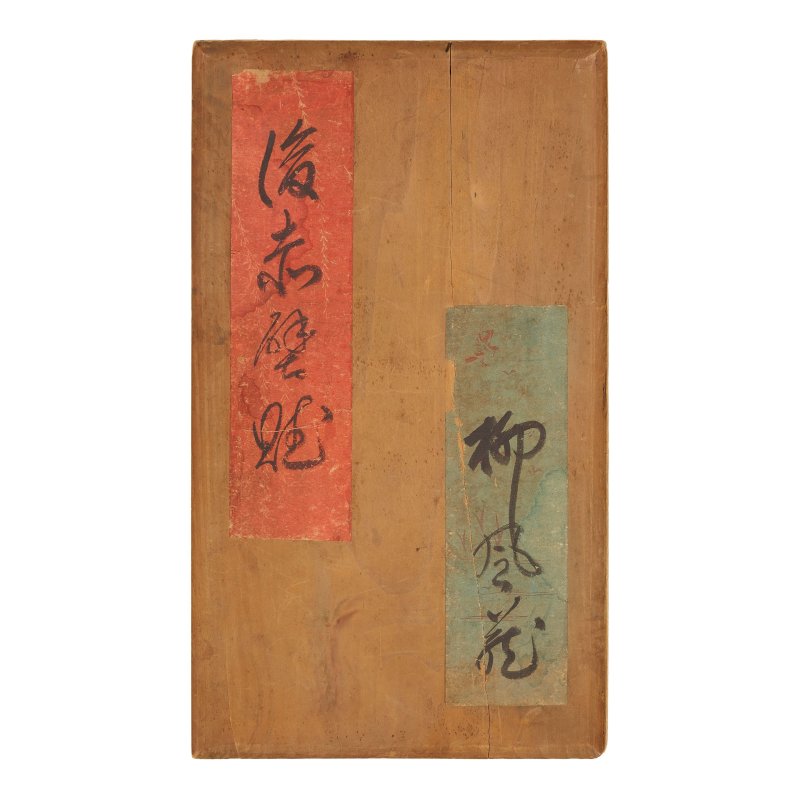 後赤壁賦
柳風藏